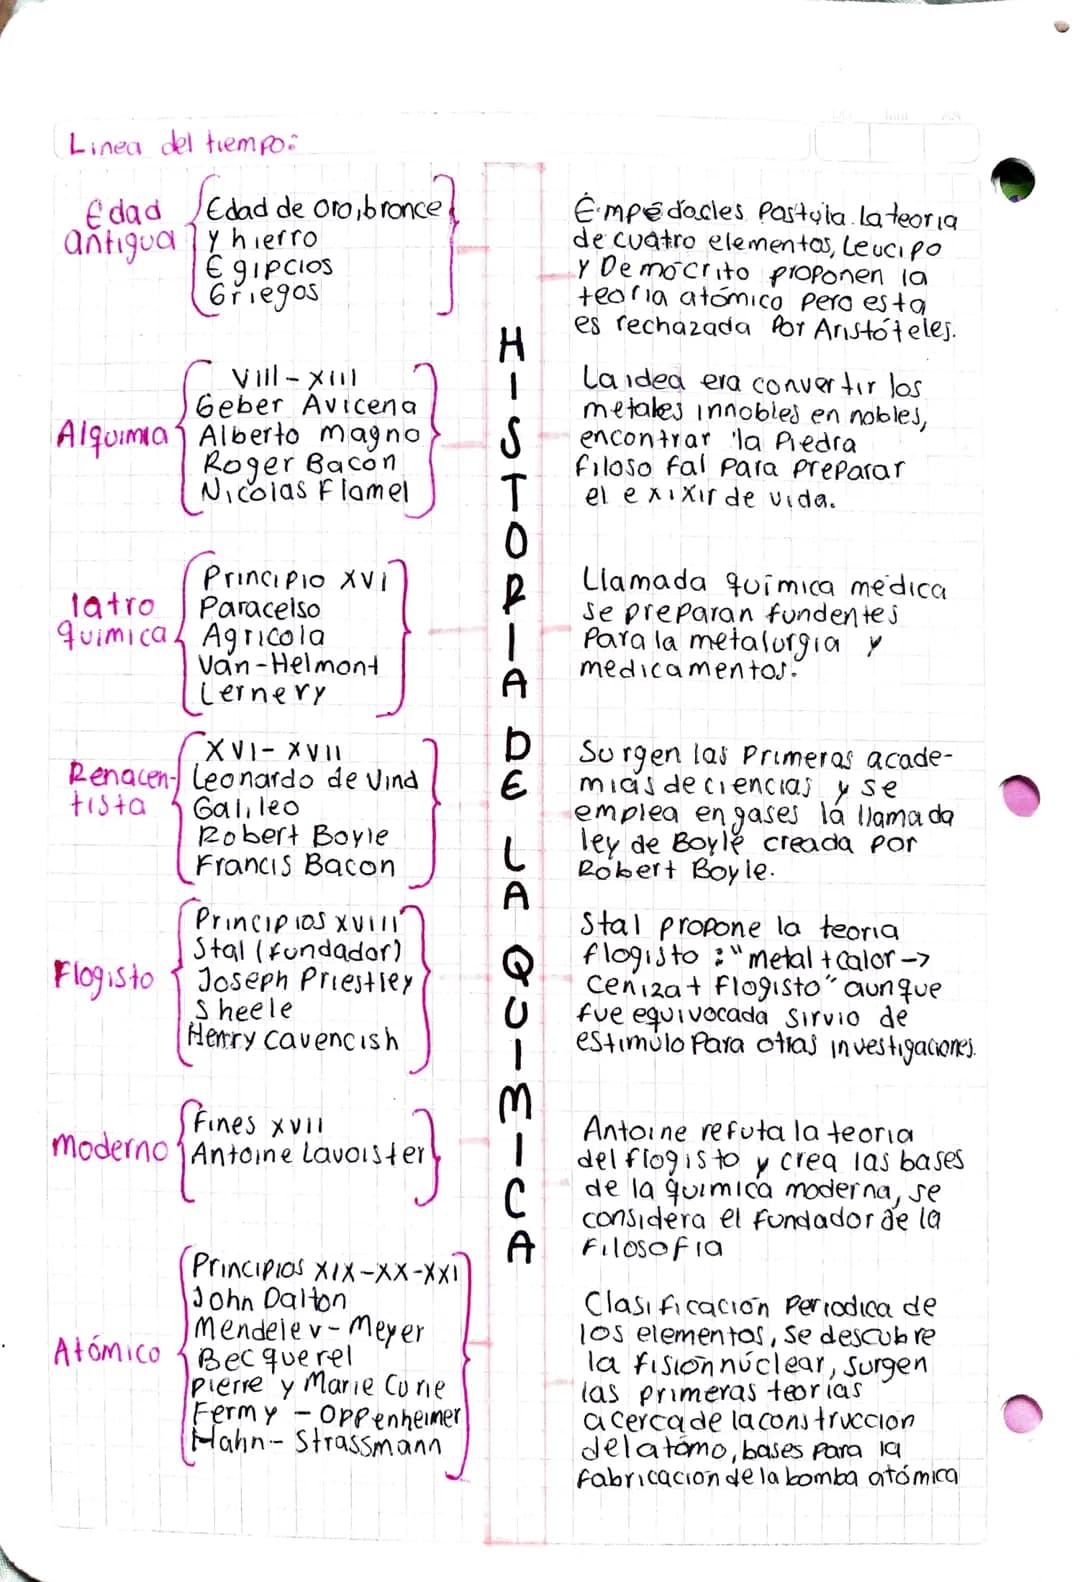 Linea del tiempo:
Edad
antigua
Edad de oro, bronce
y hierro
Egipcios
Griegos
Empédocles Postula la teoria
de cuatro elementos, Leucipo
y Demócrito proponen la
teoria atómico pero esta
es rechazada Por Aristóteles.
Alquimia
VIII-XIII
Geber Avicena
Alberto magno
Roger Bacon
Nicolas Flamel
La idea era convertir los
metales innobles en nobles,
encontrar la Piedra
filoso fal para preparar
el exixir de vida.
Iatro
quimica
Principio XVI
Paracelso
Agricola
Van-Helmont
Lernery
Llamada química medica
se preparan fundentes
Para la metalurgia y
medicamentos.
Renacen-
tista
XVI-XVII
Leonardo de Vinci
Galileo
Robert Boyle
Francis Bacon
Surgen las Primeras acade-
mias de ciencias y se
emplea en gases la llamada
ley de Boyle creada por
Robert Boyle.
Flogisto
Principios XVIII
Stal (fundador)
Joseph Priestley
Sheele
Henry Cavencish
Stal propone la teoria
flogisto : "metal + calor ->
Ceniza + Flogisto" aunque
fue equivocada sirvio de
estimulo Para otras investigaciones.
Moderno
Fines XVII
Antoine Lavoister
Antoine refuta la teoria
del flogisto y crea las bases
de la quimica moderna, se
considera el fundador de la
Filosofia
Atómico
Principios XIX-XX-XXI
John Dalton
Mendelev-Meyer
Becquerel
Pierre y Marie Curie
Fermy - Oppenheimer
Hahn- Strassmann
Clasificación Periodica de
los elementos, se descubre
la fisión núclear, surgen
las primeras teorias
acerca de la construccion
del atómo, bases para la
fabricacion de la bomba atómica
HISTORIA DE LA QUIMICA